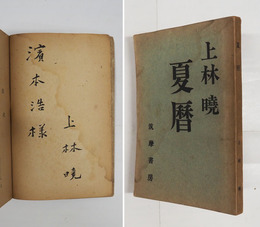 濱本浩樣
上林曉
上林曉
夏暦
筑摩書房